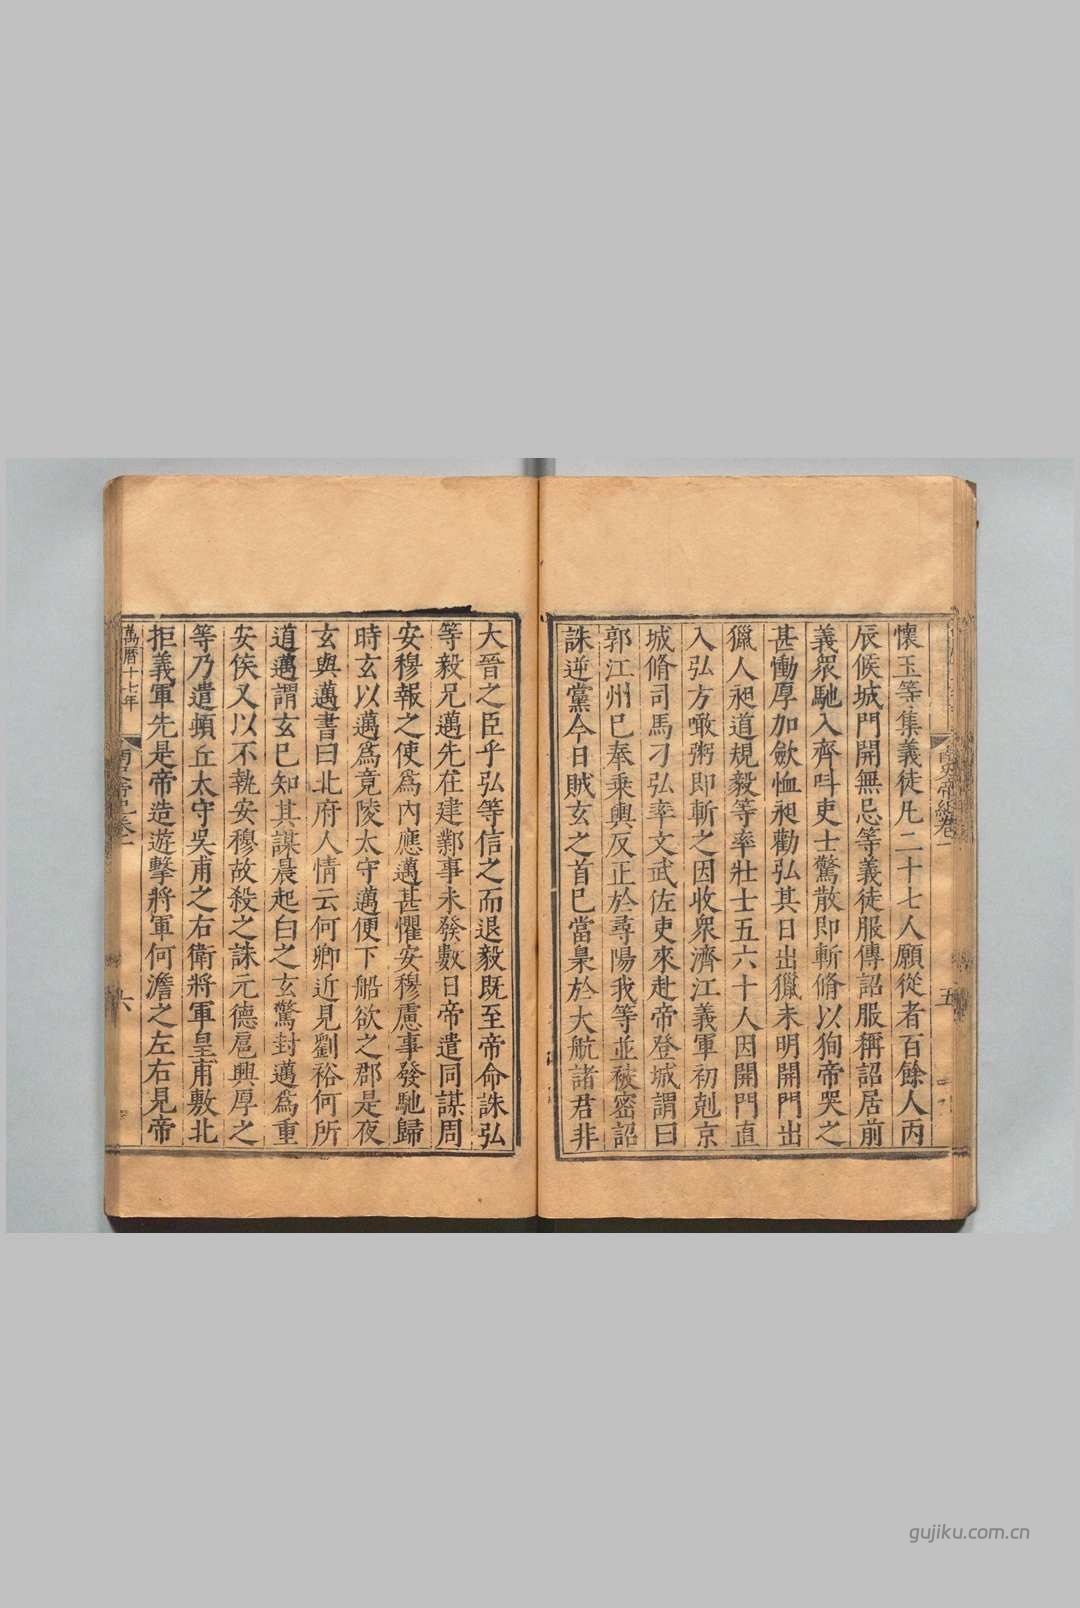 懷玉等集義徒凡二十七人願從者百餘人丙
辰候城門開無忌等義徒服傳詔服稱詔居前
義眾馳入齊呌吏士驚散即斬脩以狥帝哭之
甚慟厚加歛恤昶勸弘其日出獵未明開門出
獵人昶道規毅等率壯士五六十人因開門直
入弘方噉粥即斬之因收衆濟江義軍初剋京
城脩司馬刁弘率文武佐吏來赴帝登城謂曰
郭江州已奉乘輿反正於尋陽我等並被密詔
誅逆黨今日賊玄之首已當梟於大航諸君非
大晉之臣乎弘等信之而退毅既至帝命誅弘
等毅兄邁先在建鄴事未發數日帝遣同謀周
安穆報之使爲內應邁甚懼安穆慮事發馳歸
時玄以邁爲竟陵太守邁便下船欲之郡是夜
玄與邁書曰北府人情云何卿近見劉裕何所
道邁謂玄已知其謀晨起白之玄驚封邁爲重
安侯又以不執安穆故殺之誅元德扈興厚之
等乃遣頓丘太守吳甫之右衛將軍皇甫敷北
拒義軍先是帝造遊擊將軍何澹之左右見帝
萬曆十七年
六
gujiku.com.cn